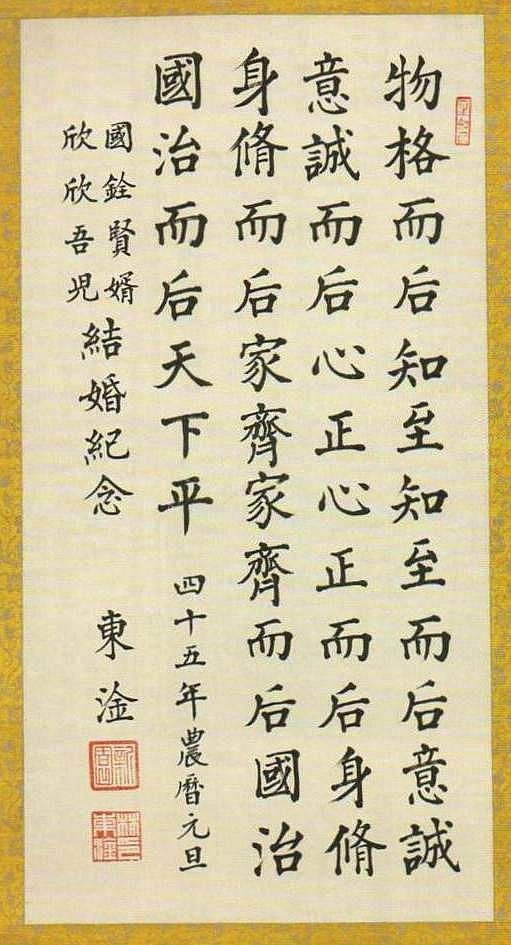 物格而后知至知至而后意誠
意誠而后心正心正而后身脩
身脩而后家齊家齊而后國治
國治而后天下平 四十五年農曆元旦
國銓賢婿
欣欣吾児
結婚紀念 東淦